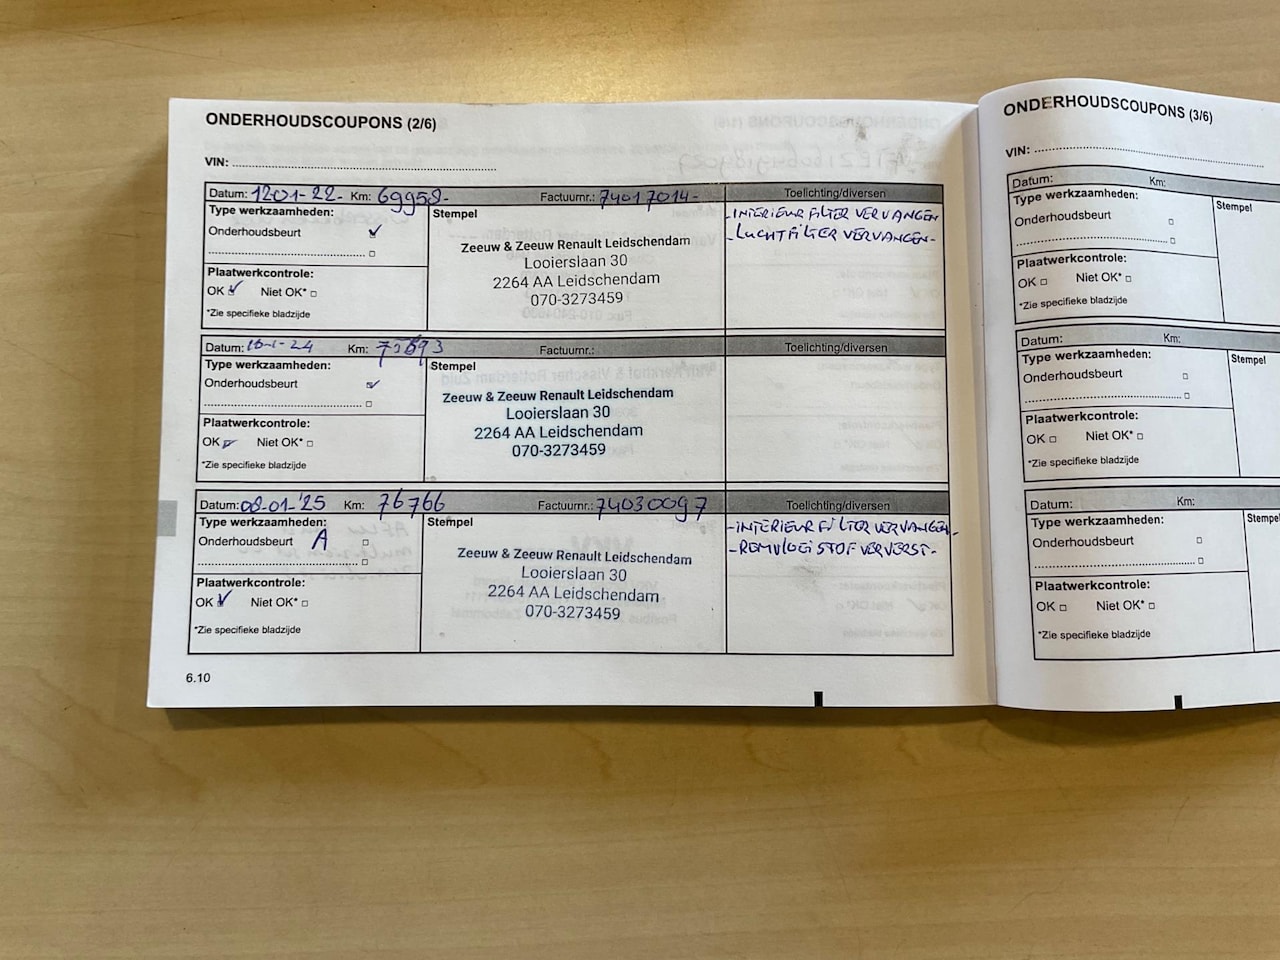 ONDERHOUDSCOUPONS (2/6)
VIN:
Datum: 12-01-22- Km: 69958- Factuurnr.: 74017014- Toelichting/diversen
Type werkzaamheden:
Onderhoudsbeurt
Plaatwerkcontrole:
OK Niet OK*
*Zie specifieke bladzijde
Stempel
Zeeuw & Zeeuw Renault Leidschendam
Looierslaan 30
2264 AA Leidschendam
070-3273459
-INTERIEURFILTER VERVANGEN
-LUCHTFILTER VERVANGEN-
Datum: Km: Factuurnr.: Toelichting/diversen
Type werkzaamheden:
Onderhoudsbeurt
Plaatwerkcontrole:
OK Niet OK*
*Zie specifieke bladzijde
Stempel
Zeeuw & Zeeuw Renault Leidschendam
Looierslaan 30
2264 AA Leidschendam
070-3273459
Datum: 08-01-'25 Km: 76766 Factuurnr.: 74030097 Toelichting/diversen
Type werkzaamheden:
Onderhoudsbeurt A
Plaatwerkcontrole:
OK Niet OK*
*Zie specifieke bladzijde
Stempel
Zeeuw & Zeeuw Renault Leidschendam
Looierslaan 30
2264 AA Leidschendam
070-3273459
-INTERIEURFILTER VERVANGEN-
-REMVLOEISTOF VERVERST-
6.10
ONDERHOUDSCOUPONS (3/6)
VIN:
Datum: Km:
Type werkzaamheden:
Onderhoudsbeurt
Plaatwerkcontrole:
OK Niet OK*
*Zie specifieke bladzijde
Stempel
Datum: Km:
Type werkzaamheden:
Onderhoudsbeurt
Plaatwerkcontrole:
OK Niet OK*
*Zie specifieke bladzijde
Stempel
Datum: Km:
Type werkzaamheden:
Onderhoudsbeurt
Plaatwerkcontrole:
OK Niet OK*
*Zie specifieke bladzijde
Stempel